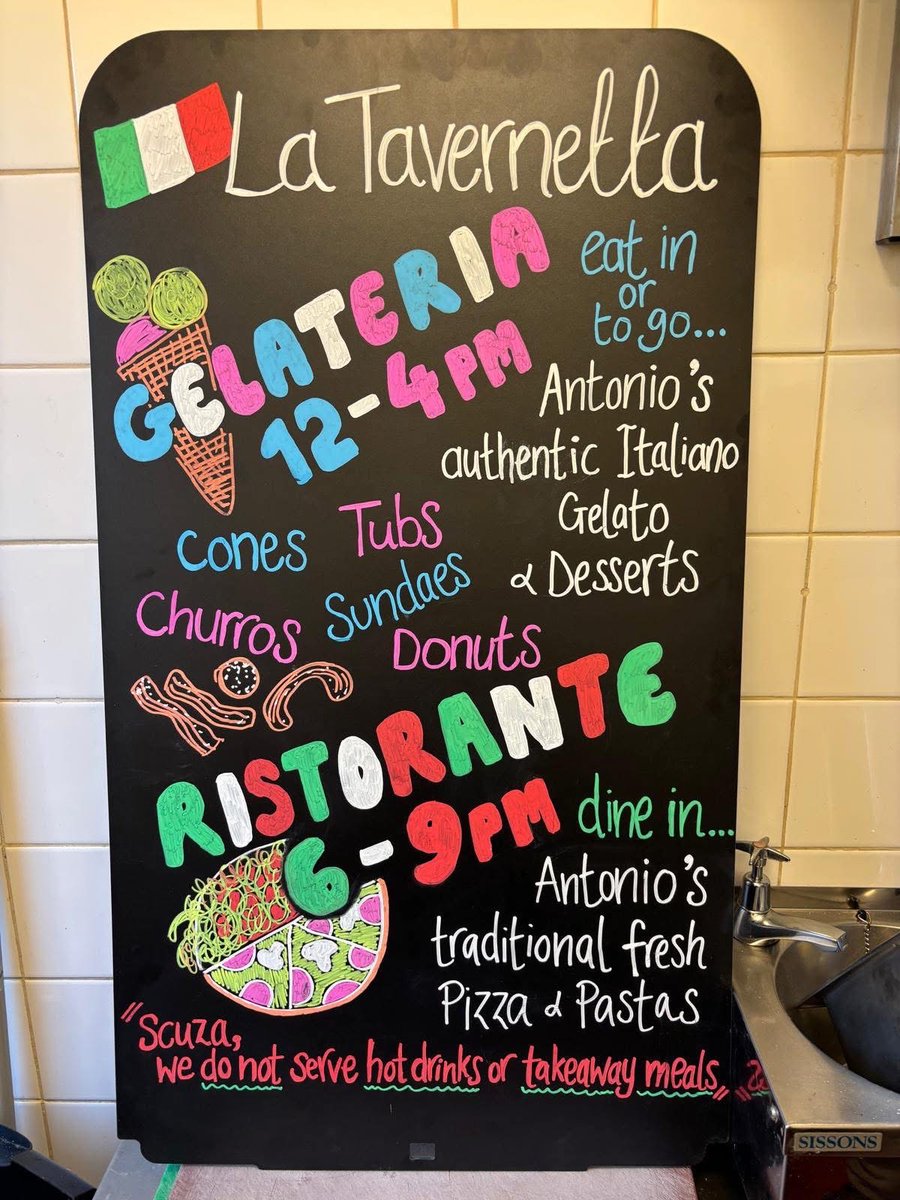 La Tavernetta
GELATERIA
12-4PM
eat in
or
to go...
Antonio's
authentic Italiano
Gelato
& Desserts
Cones
Tubs
Churros
Sundaes
Donuts
RISTORANTE
6-9PM
dine in...
Antonio's
traditional fresh
Pizza & Pastas
"Scuza,
we do not serve hot drinks or takeaway meals"
SISSONS